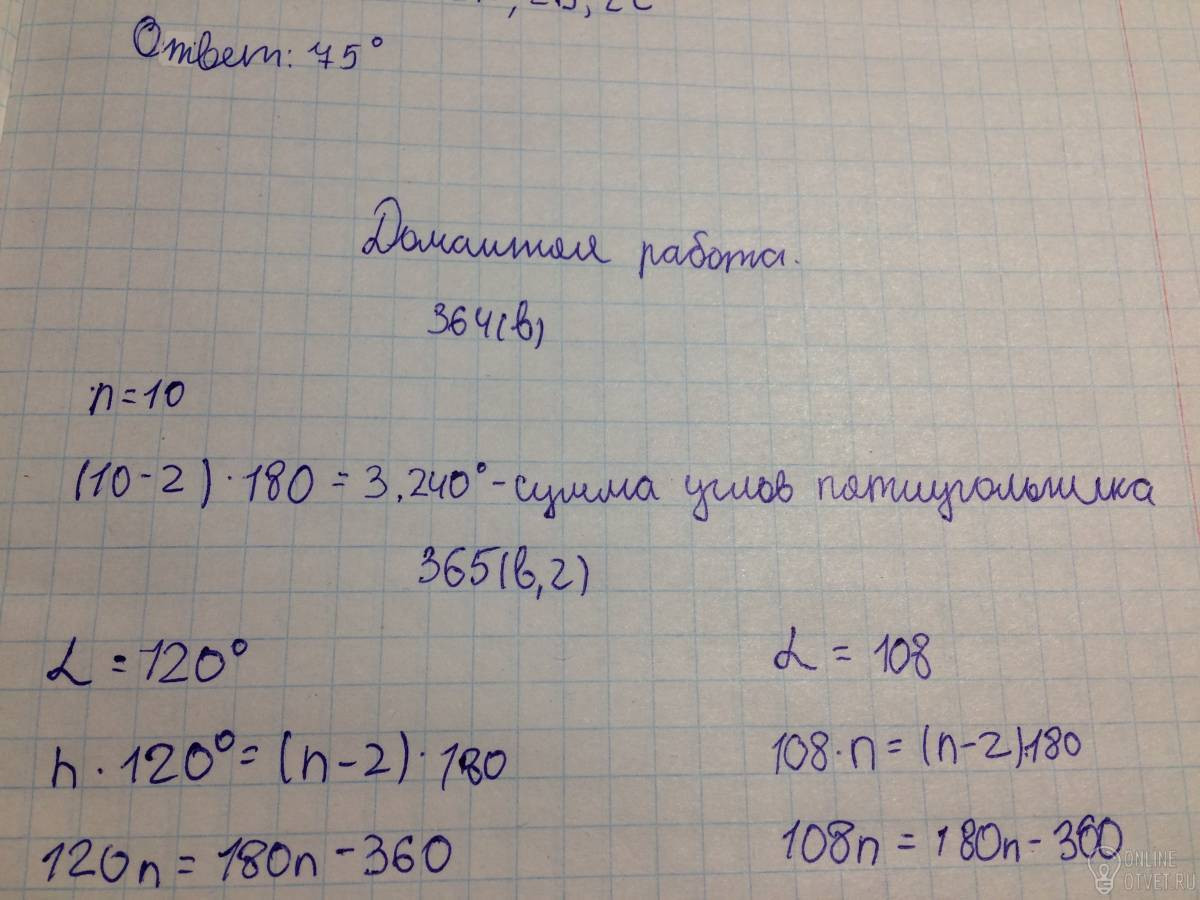 Ответ: 75°
Домашняя работа.
364(в)
n=10
(10-2)·180=3.240°-сумма углов пятиугольника
365(в,г)
∠=120°
∠=108
n·120°=(n-2)·180
108·n=(n-2)·180
120n=180n-360
108n=180n-360
ONLINE
OTVET.RU